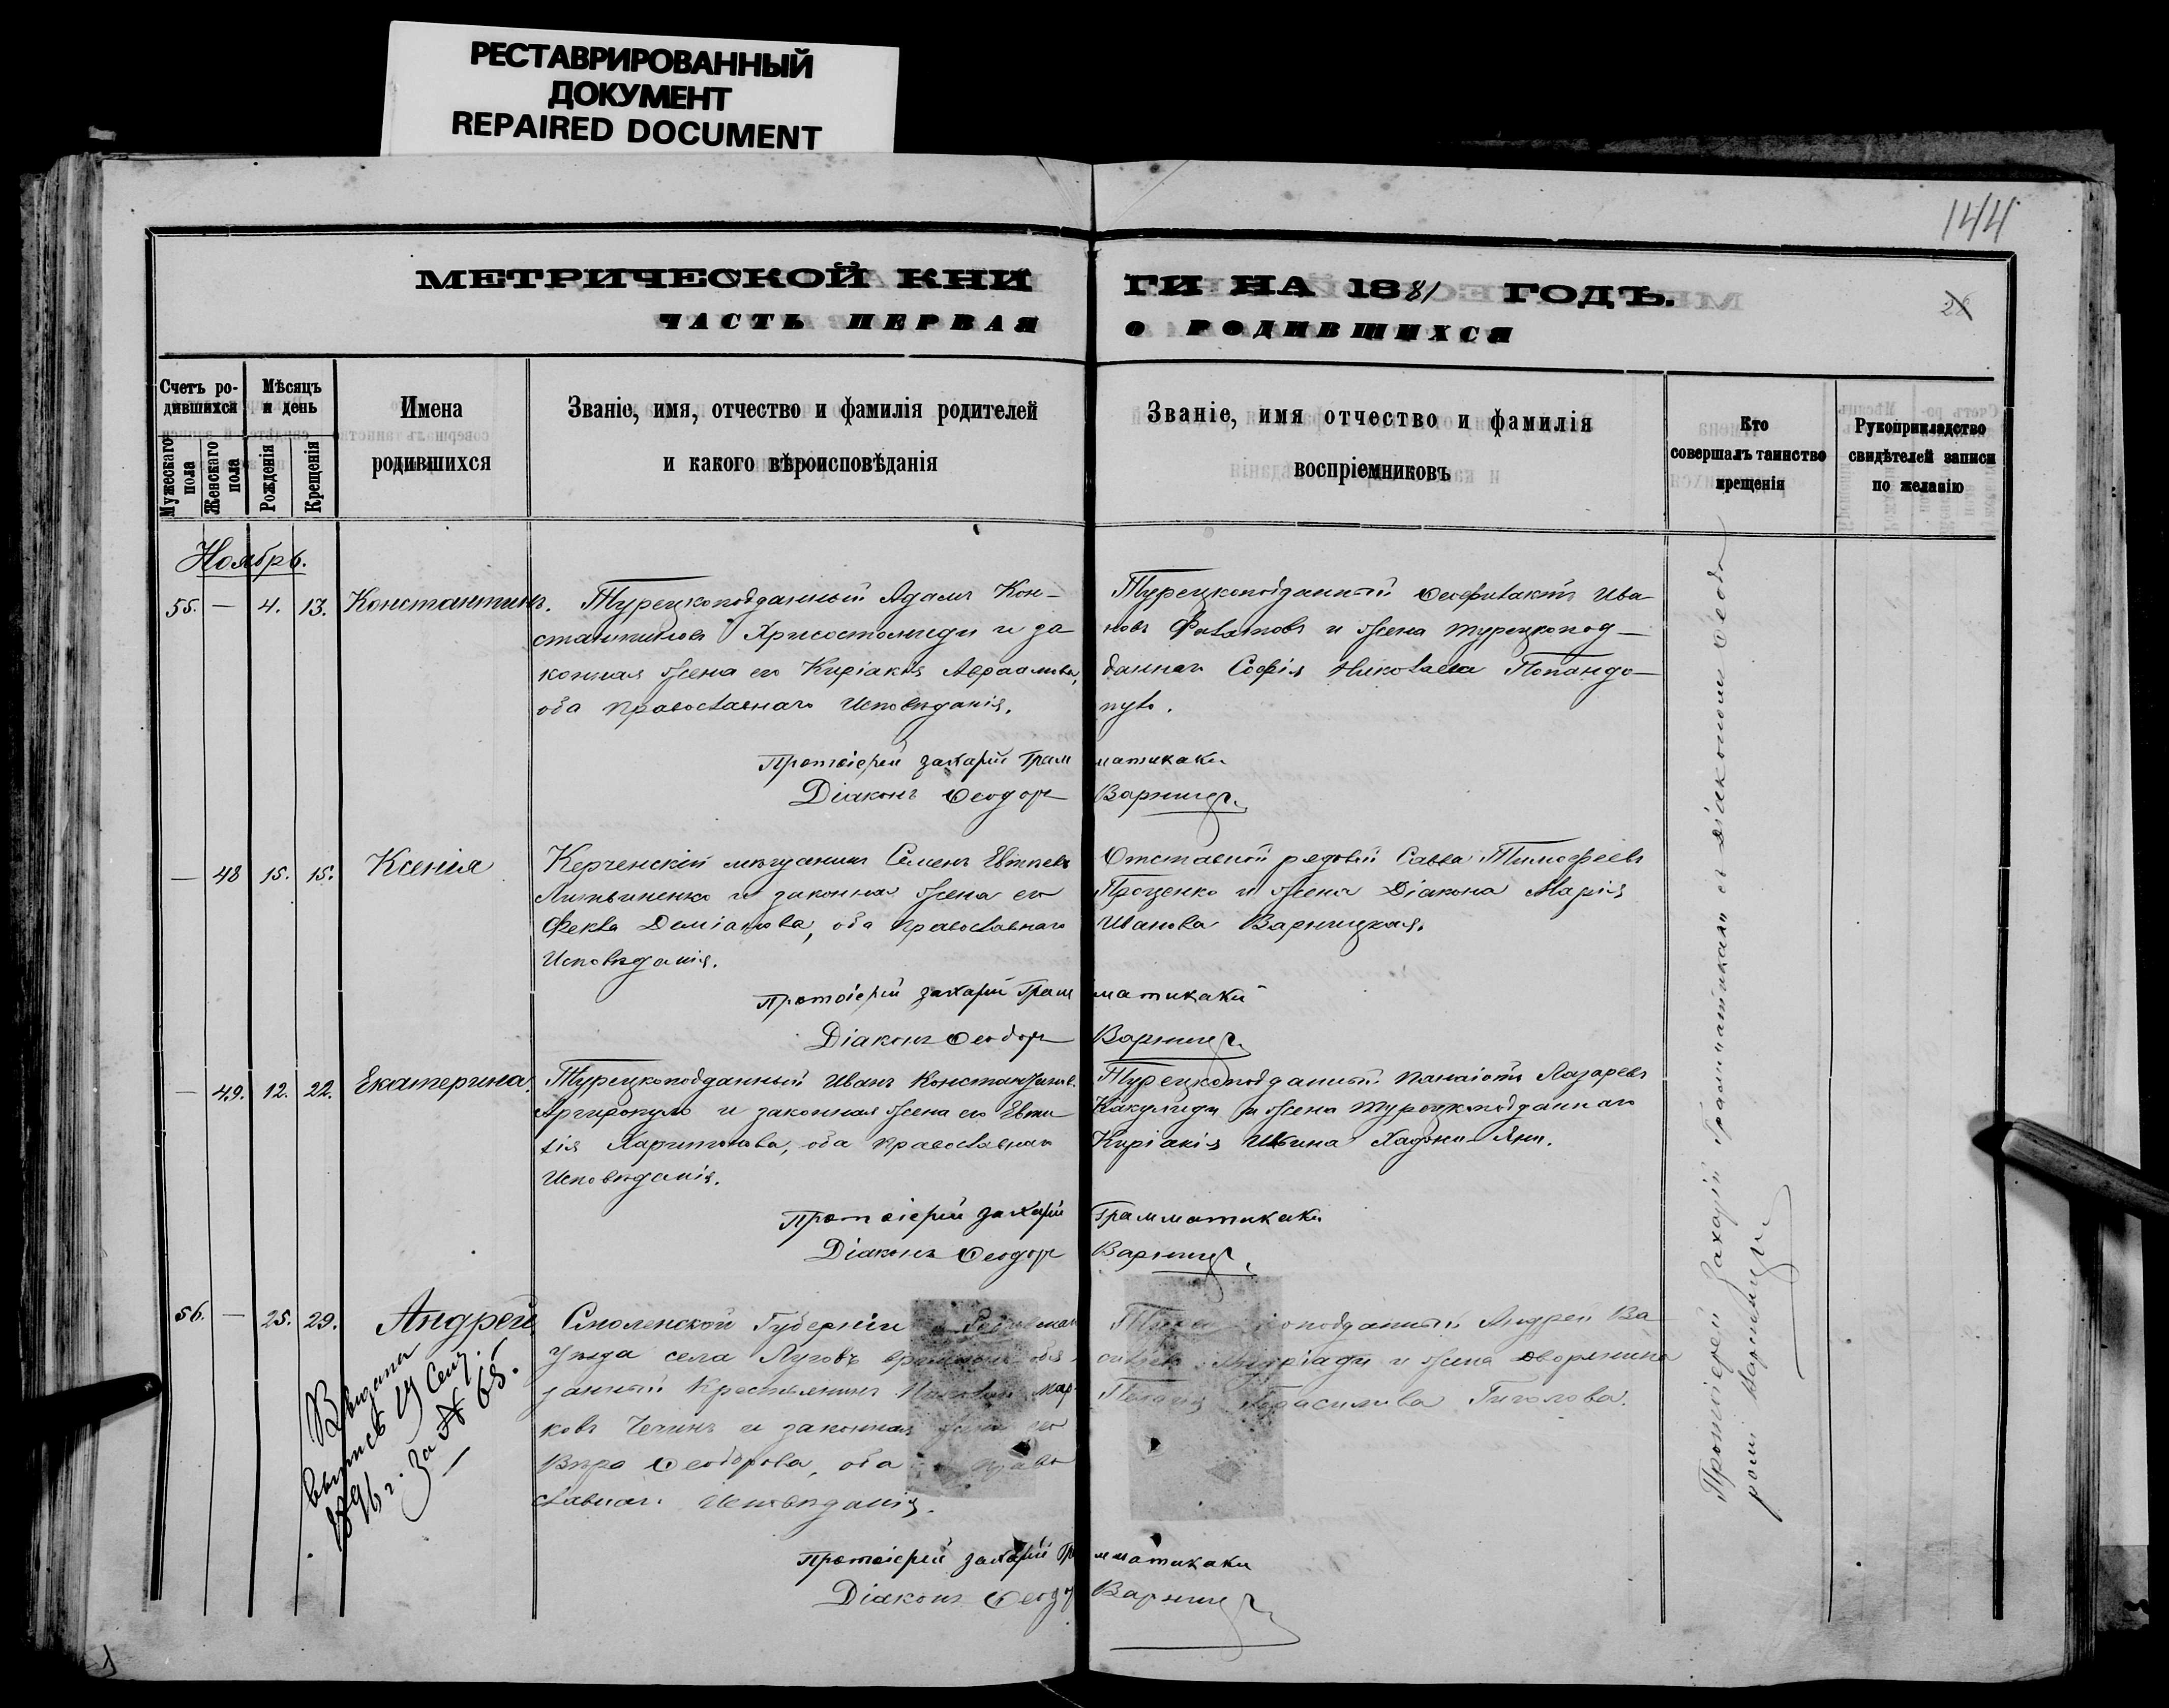 РЕСТАВРИРОВАННЫЙ
ДОКУМЕНТ
REPAIRED DOCUMENT
144
МЕТРИЧЕСКОЙ КНИ
ГИ НА 1881 ГОДЪ.
ЧАСТЬ ПЕРВАЯ
О РОДИВШИХСЯ
Счетъ ро-
дившихся
Мужескаго
пола
Женскаго
пола
Мѣсяцъ
и день
Рожденія
Крещенія
Имена
родившихся
Званіе, имя, отчество и фамилія родителей
и какого вѣроисповѣданія
Званіе, имя отчество и фамилія
воспріемниковъ
Кто
совершалъ таинство
крещенія
Рукоприкладство
свидѣтелей записи
по желанію
Ноябрь.
55. — 4. 13. Константинъ.
Турецкоподданный Адамъ Кон-
стантиновъ Хрисостомиди и за
конная жена его Киріакія Авраамова,
оба православнаго Исповѣданія.
Турецкоподданный Ѳеофилактъ Ива
новъ Филатовъ и жена турецкопод-
даннаго Софія Николаева Попандо-
пуло.
Протоіерей Захарій Грам
матикаки
Діаконъ Ѳеодоръ
Варницк
— 48 15. 15. Ксенія
Керченскій мѣщанинъ Семенъ
Литвиненко и законная жена его
Фекла Деміанова, оба православнаго
Исповѣданія.
Отставной рядовой Савва Тимофеевъ
Проценко и жена Діакона Марія
Иванова Варницкая.
Протоіерей Захарій Грам
матикаки
Діаконъ Ѳеодоръ
Варницк
— 49. 12. 22. Екатерина.
Турецкоподданный Иванъ Константинов.
Аргиропуло и законная жена его
Харитонова, оба православнаго
Исповѣданія.
Турецкоподданный Панаіотъ Лазаревъ
Какулиди и жена турецкоподданнаго
Киріакія
Протоіерей Захарій
Грамматикаки
Діаконъ Ѳеодоръ
Варницк
56. — 25. 29. Андрей
Смоленской Губерніи
Уѣзда села Луговъ временно обя
занный Крестьянинъ Мар-
ковъ и законная жена его
Вѣра Ѳеодорова, оба право
славнаго Исповѣданія.
Андрей Ва
и жена дворянина
Герасимова Гиголова.
Выдана
выпись Сент.
1896 г. За № 65.
Протоіерей Захарій Гра
мматикаки
Діаконъ Ѳеодо
Варницк
Протоіерей Захарій Грамматикаки съ Діакономъ Ѳеодо
ромъ Варницки